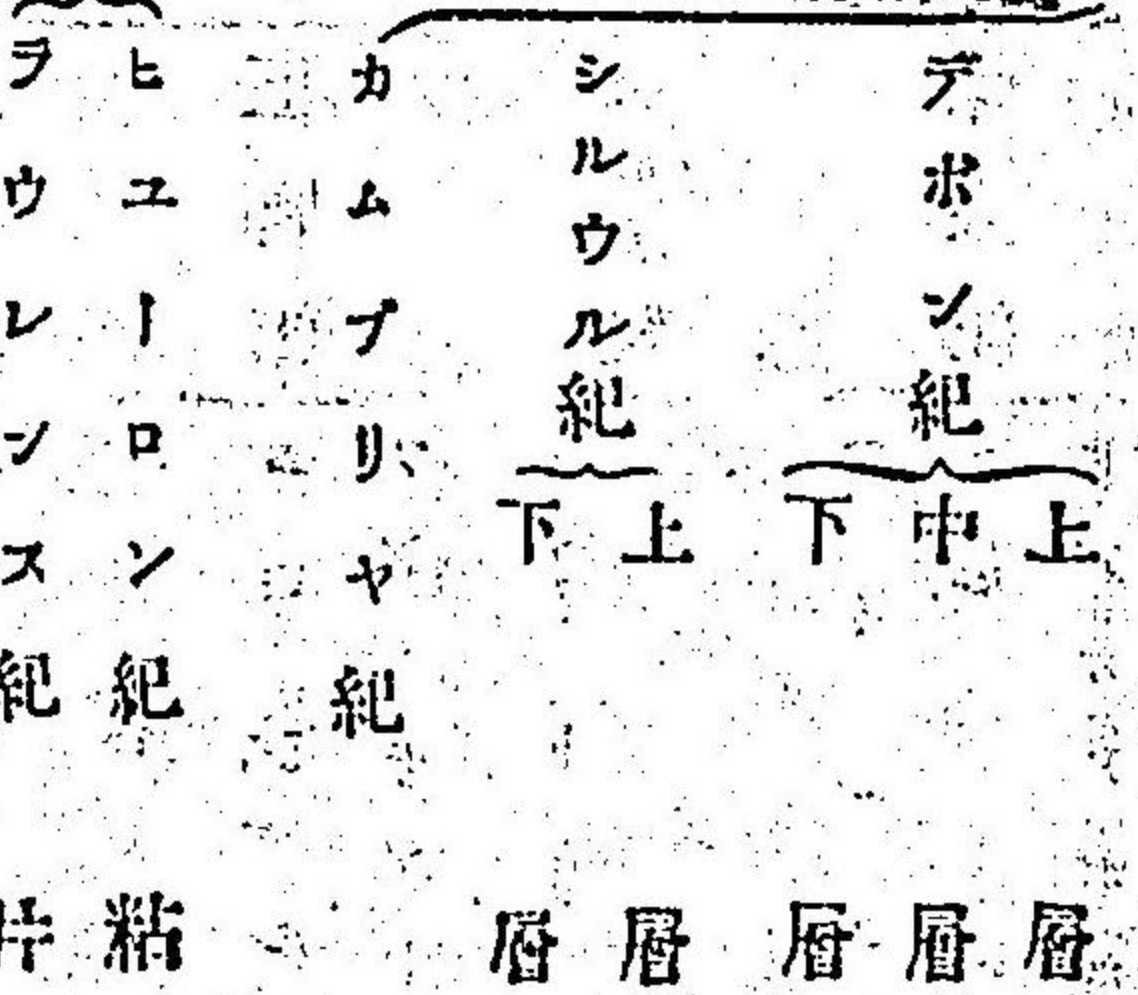 デボン紀
上層
中層
下層
シルウル紀
上層
下層
カムブリヤ紀
ヒユーロン紀
粘
ヲウレンス紀
片